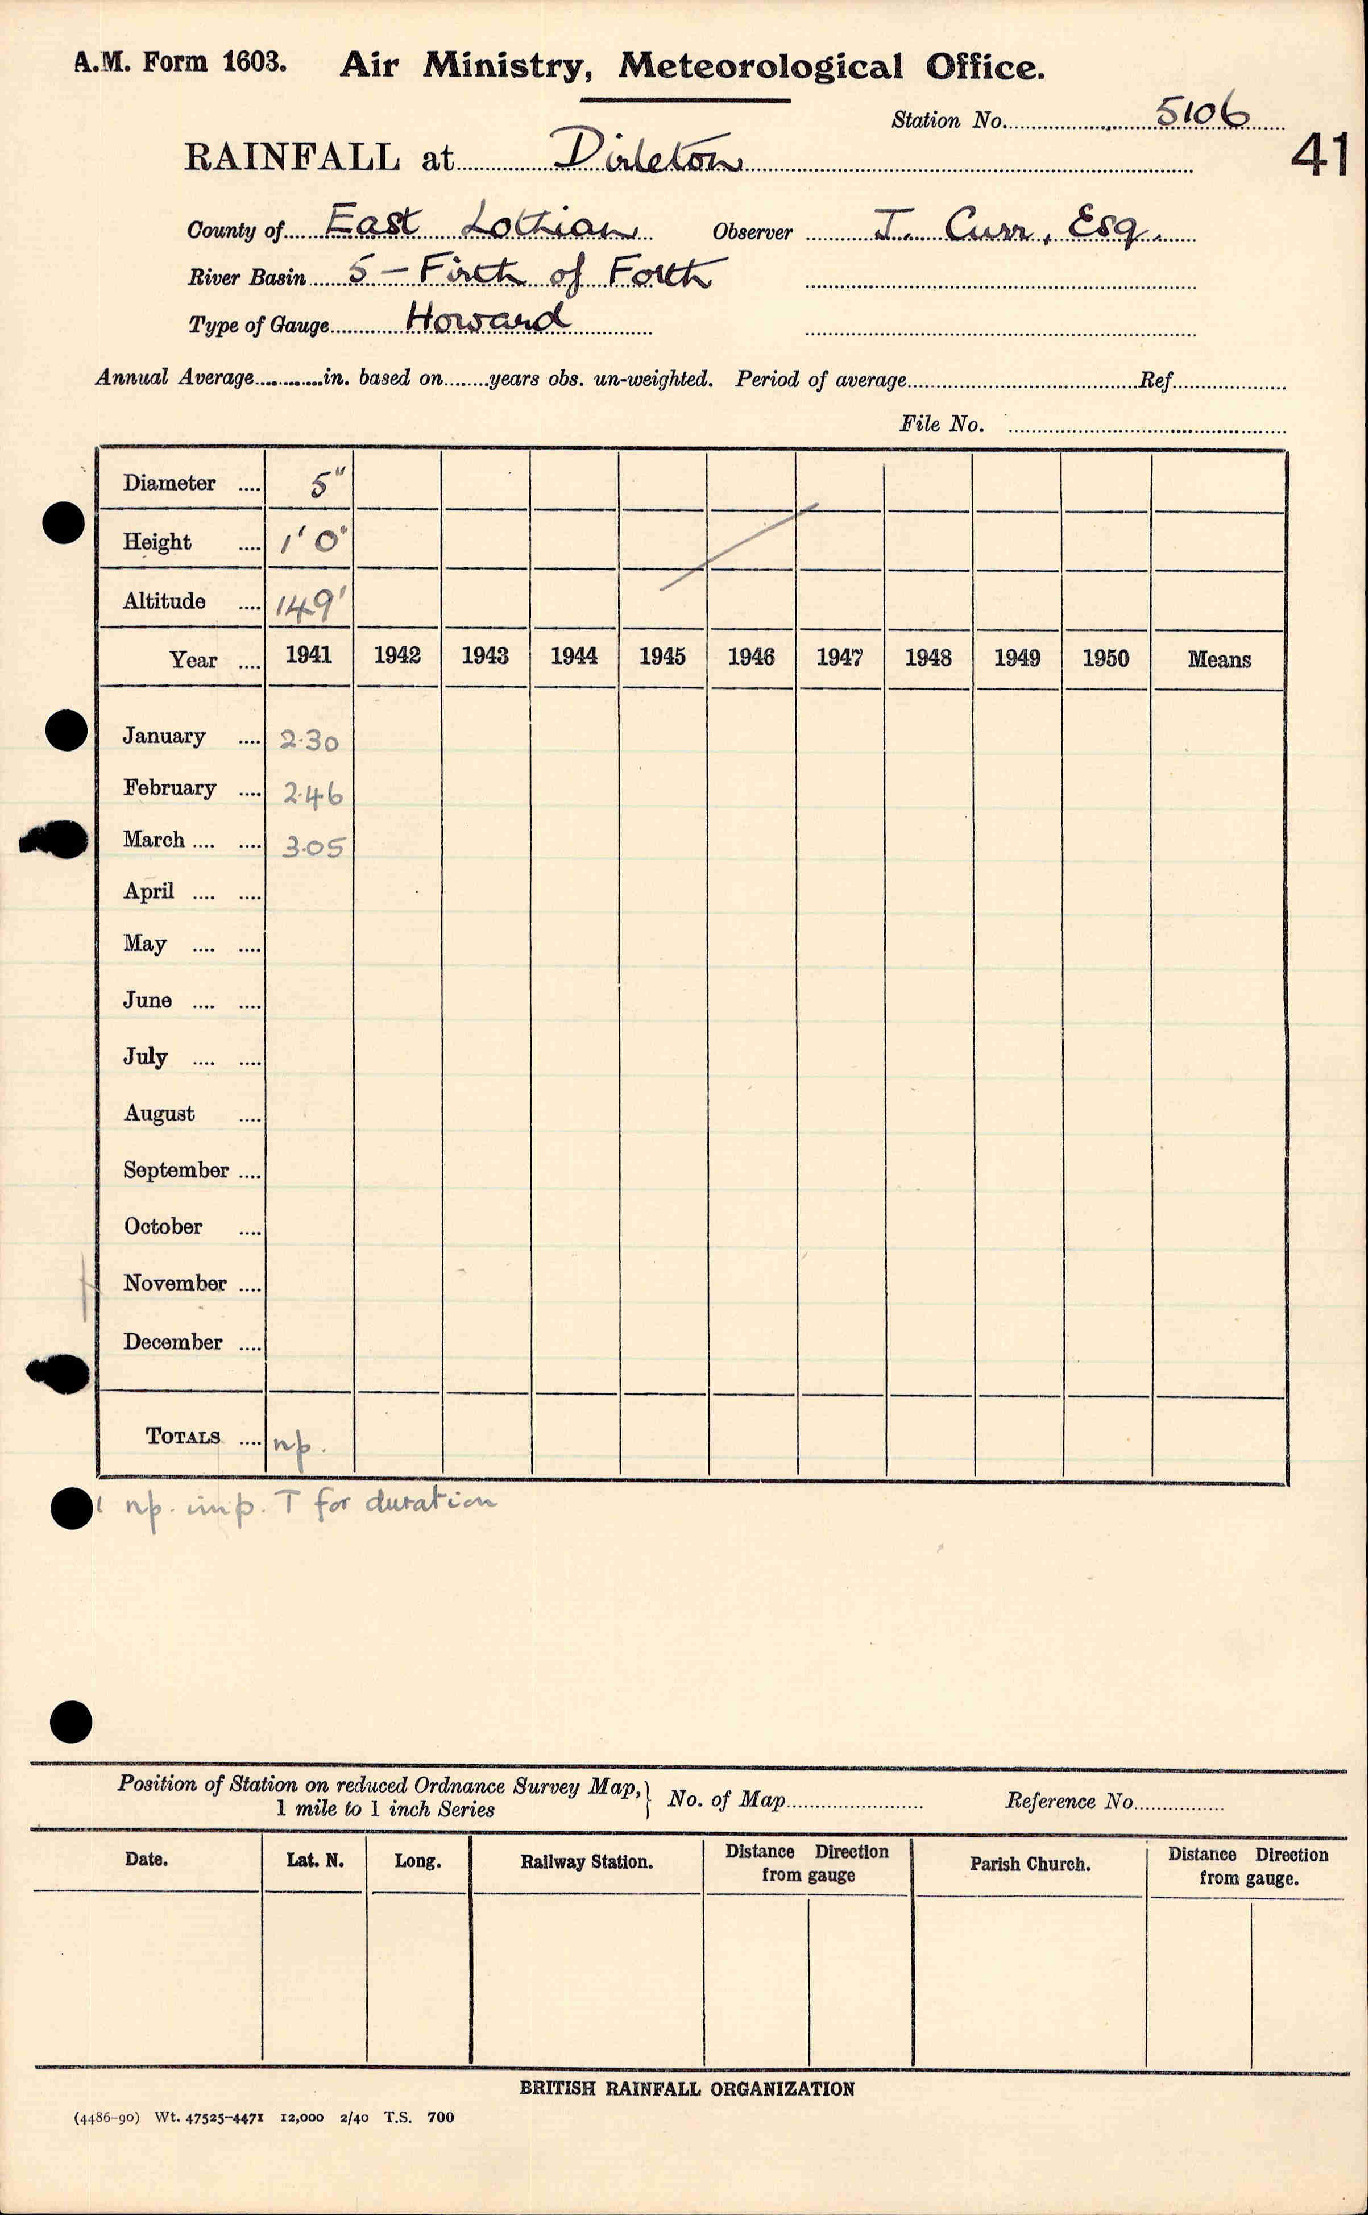 A.M. Form 1603. Air Ministry, Meteorological Office.
Station No. 5106
41
RAINFALL at Dirleton
County of East Lothian Observer J. Curr, Esq.
River Basin 5 - Firth of Forth
Type of Gauge Howard
Annual Average............in. based on........years obs. un-weighted. Period of average........Ref........
File No. ........
Diameter .... 5"
Height .... 1' 0"
Altitude .... 149'
Year .... 1941 1942 1943 1944 1945 1946 1947 1948 1949 1950 Means
January .... 2.30
February .... 2.46
March .... .... 3.05
April .... ....
May .... ....
June .... ....
July .... ....
August ....
September ....
October ....
November ....
December ....
TOTALS .... np.
1 np. imp. T for duration
Position of Station on reduced Ordnance Survey Map,} No. of Map........ Reference No........
1 mile to 1 inch Series
Date. Lat. N. Long. Railway Station. Distance Direction from gauge Parish Church. Distance Direction from gauge.
BRITISH RAINFALL ORGANIZATION
(4486-90) Wt. 47525-4471 12,000 2/40 T.S. 700